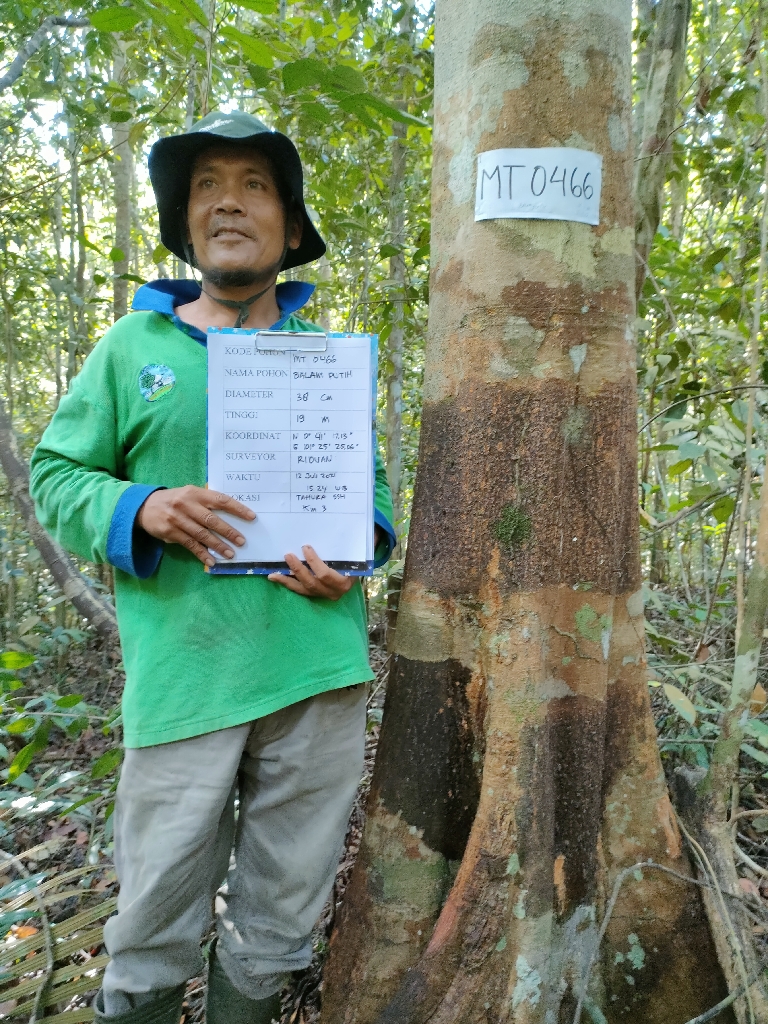 MT 0466
KODE POHON MT 0466
NAMA POHON BALAM PUTIH
DIAMETER 38 Cm
TINGGI 19 M
KOORDINAT N 0° 41' 17.13"
E 101° 25' 25.06"
SURVEYOR RIDUAN
WAKTU 12 Juli
15.24 WIB
LOKASI TAHURA SSH
Km 3